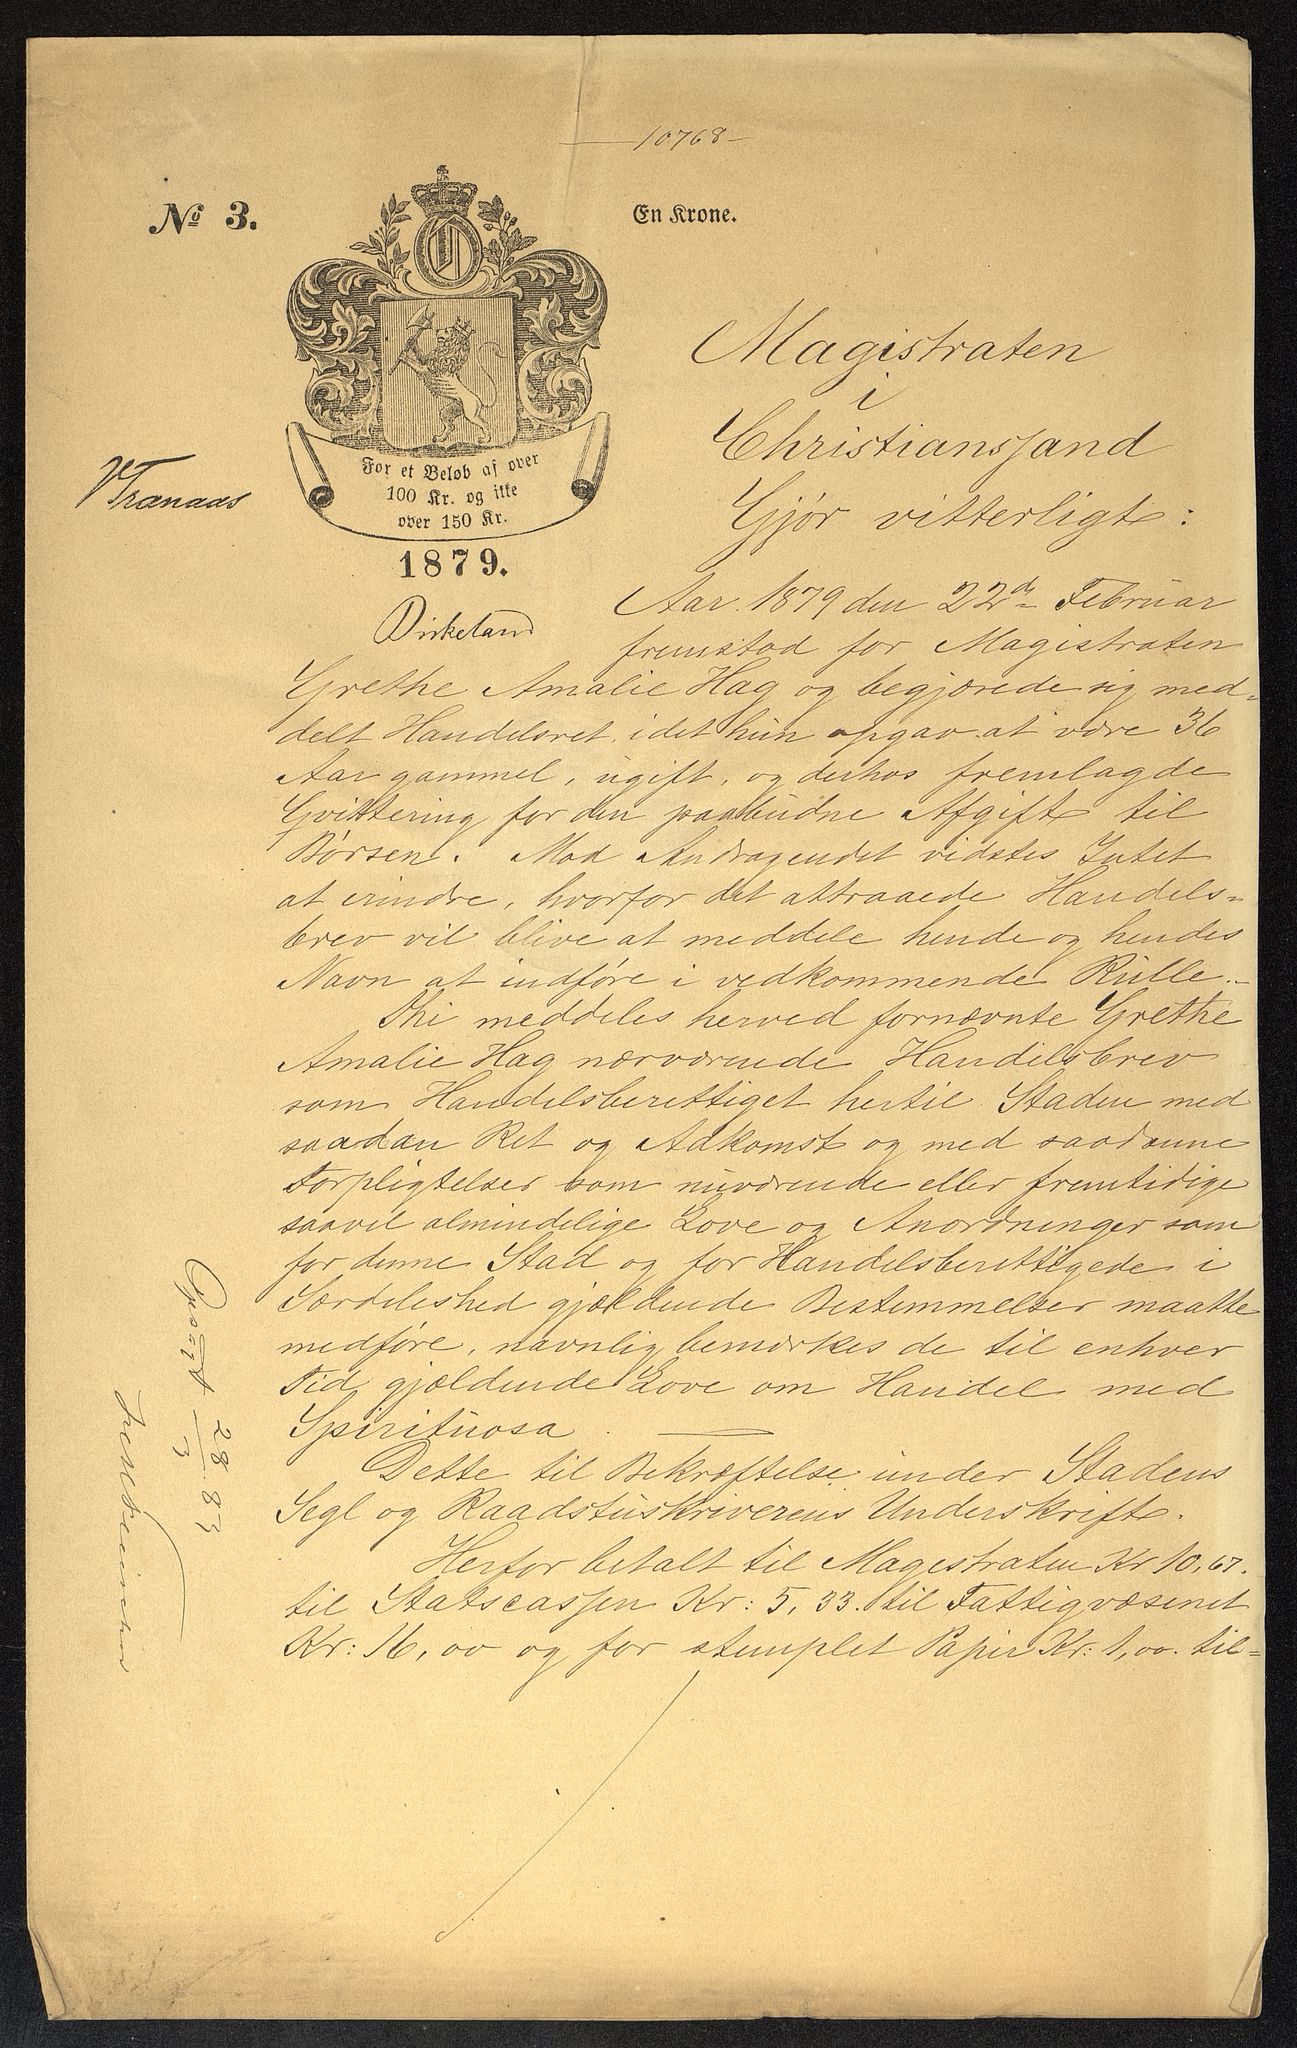 10768
No 3.
En Krone.
Magistraten
i
Christianssand
Gjør vitterligt:
For et Beløb af over
100 Kr. og ikke
over 150 Kr.
1879.
VTranaas
Birkeland
Aar 1879 den 22de Februar
fremstod for Magistraten
Grethe Amalie Hag og begjærede sig med-
delt Handelsret, idet hun opgav at være 36
Aar gammel, ugift, og derhos fremlagde
Qvittering for den paabudne Afgift til
Børsen. Mod Andragendet vidstes Intet
at erindre, hvorfor det attraaede Handels-
brev vil blive at meddele hende og hendes
Navn at indføre i vedkommende Rulle.
Thi meddeles herved fornævnte Grethe
Amalie Hag nærværende Handelsbrev
som Handelsberettiget hertil Staden med
saadan Ret og Adkomst og med saadanne
Forpligtelser som nuværende eller fremtidige
saavel almindelige Love og Anordninger som
for denne Stad og for Handelsberettigede i
Særdeleshed gjældende Bestemmelser maatte
medføre, navnlig bemærkes de til enhver
Tid gjældende Love om Handel med
Spirituosa.
Dette til Bekræftelse under Stadens
Segl og Raadstuskriverens Underskrift.
Herfor betalt til Magistraten Kr 10,67.
til Statscassen Kr: 5,33. til Fattigvæsenet
Kr: 16,00 og for stemplet Papir Kr: 1,00. til-
Opsagt 28/3 83